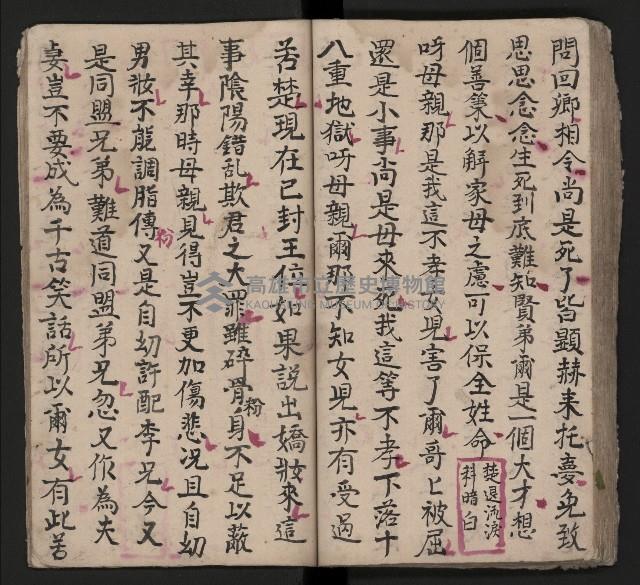 問回卿相令尚是死了皆顯赫来托夢免致
思思念念生死到底難知賢弟爾是一個大才想
個善策以解家母之慮可以保全姓命
楚退流淚
科暗白
呀母親那是我這不孝女児害了爾哥上被屈
還是小事尚是母來氣死我這等不孝下落十
八重地獄呀母親爾那不知女児亦有受過
苦楚現在已封王位如果説出嬌妝來這
事陰陽錯乱欺君之大罪雖碎骨粉身不足以蔽
其辜那時母親見得豈不更加傷悲况且自幼
男妝不能調脂傅粉又是自幼許配李兄今又
是同盟兄弟難道同盟弟兄忽又作為夫
妻豈不要成為千古笑話所以爾女有此苦
高雄市立歷史博物館
KAOHSIUNG MUSEUM OF HISTORY